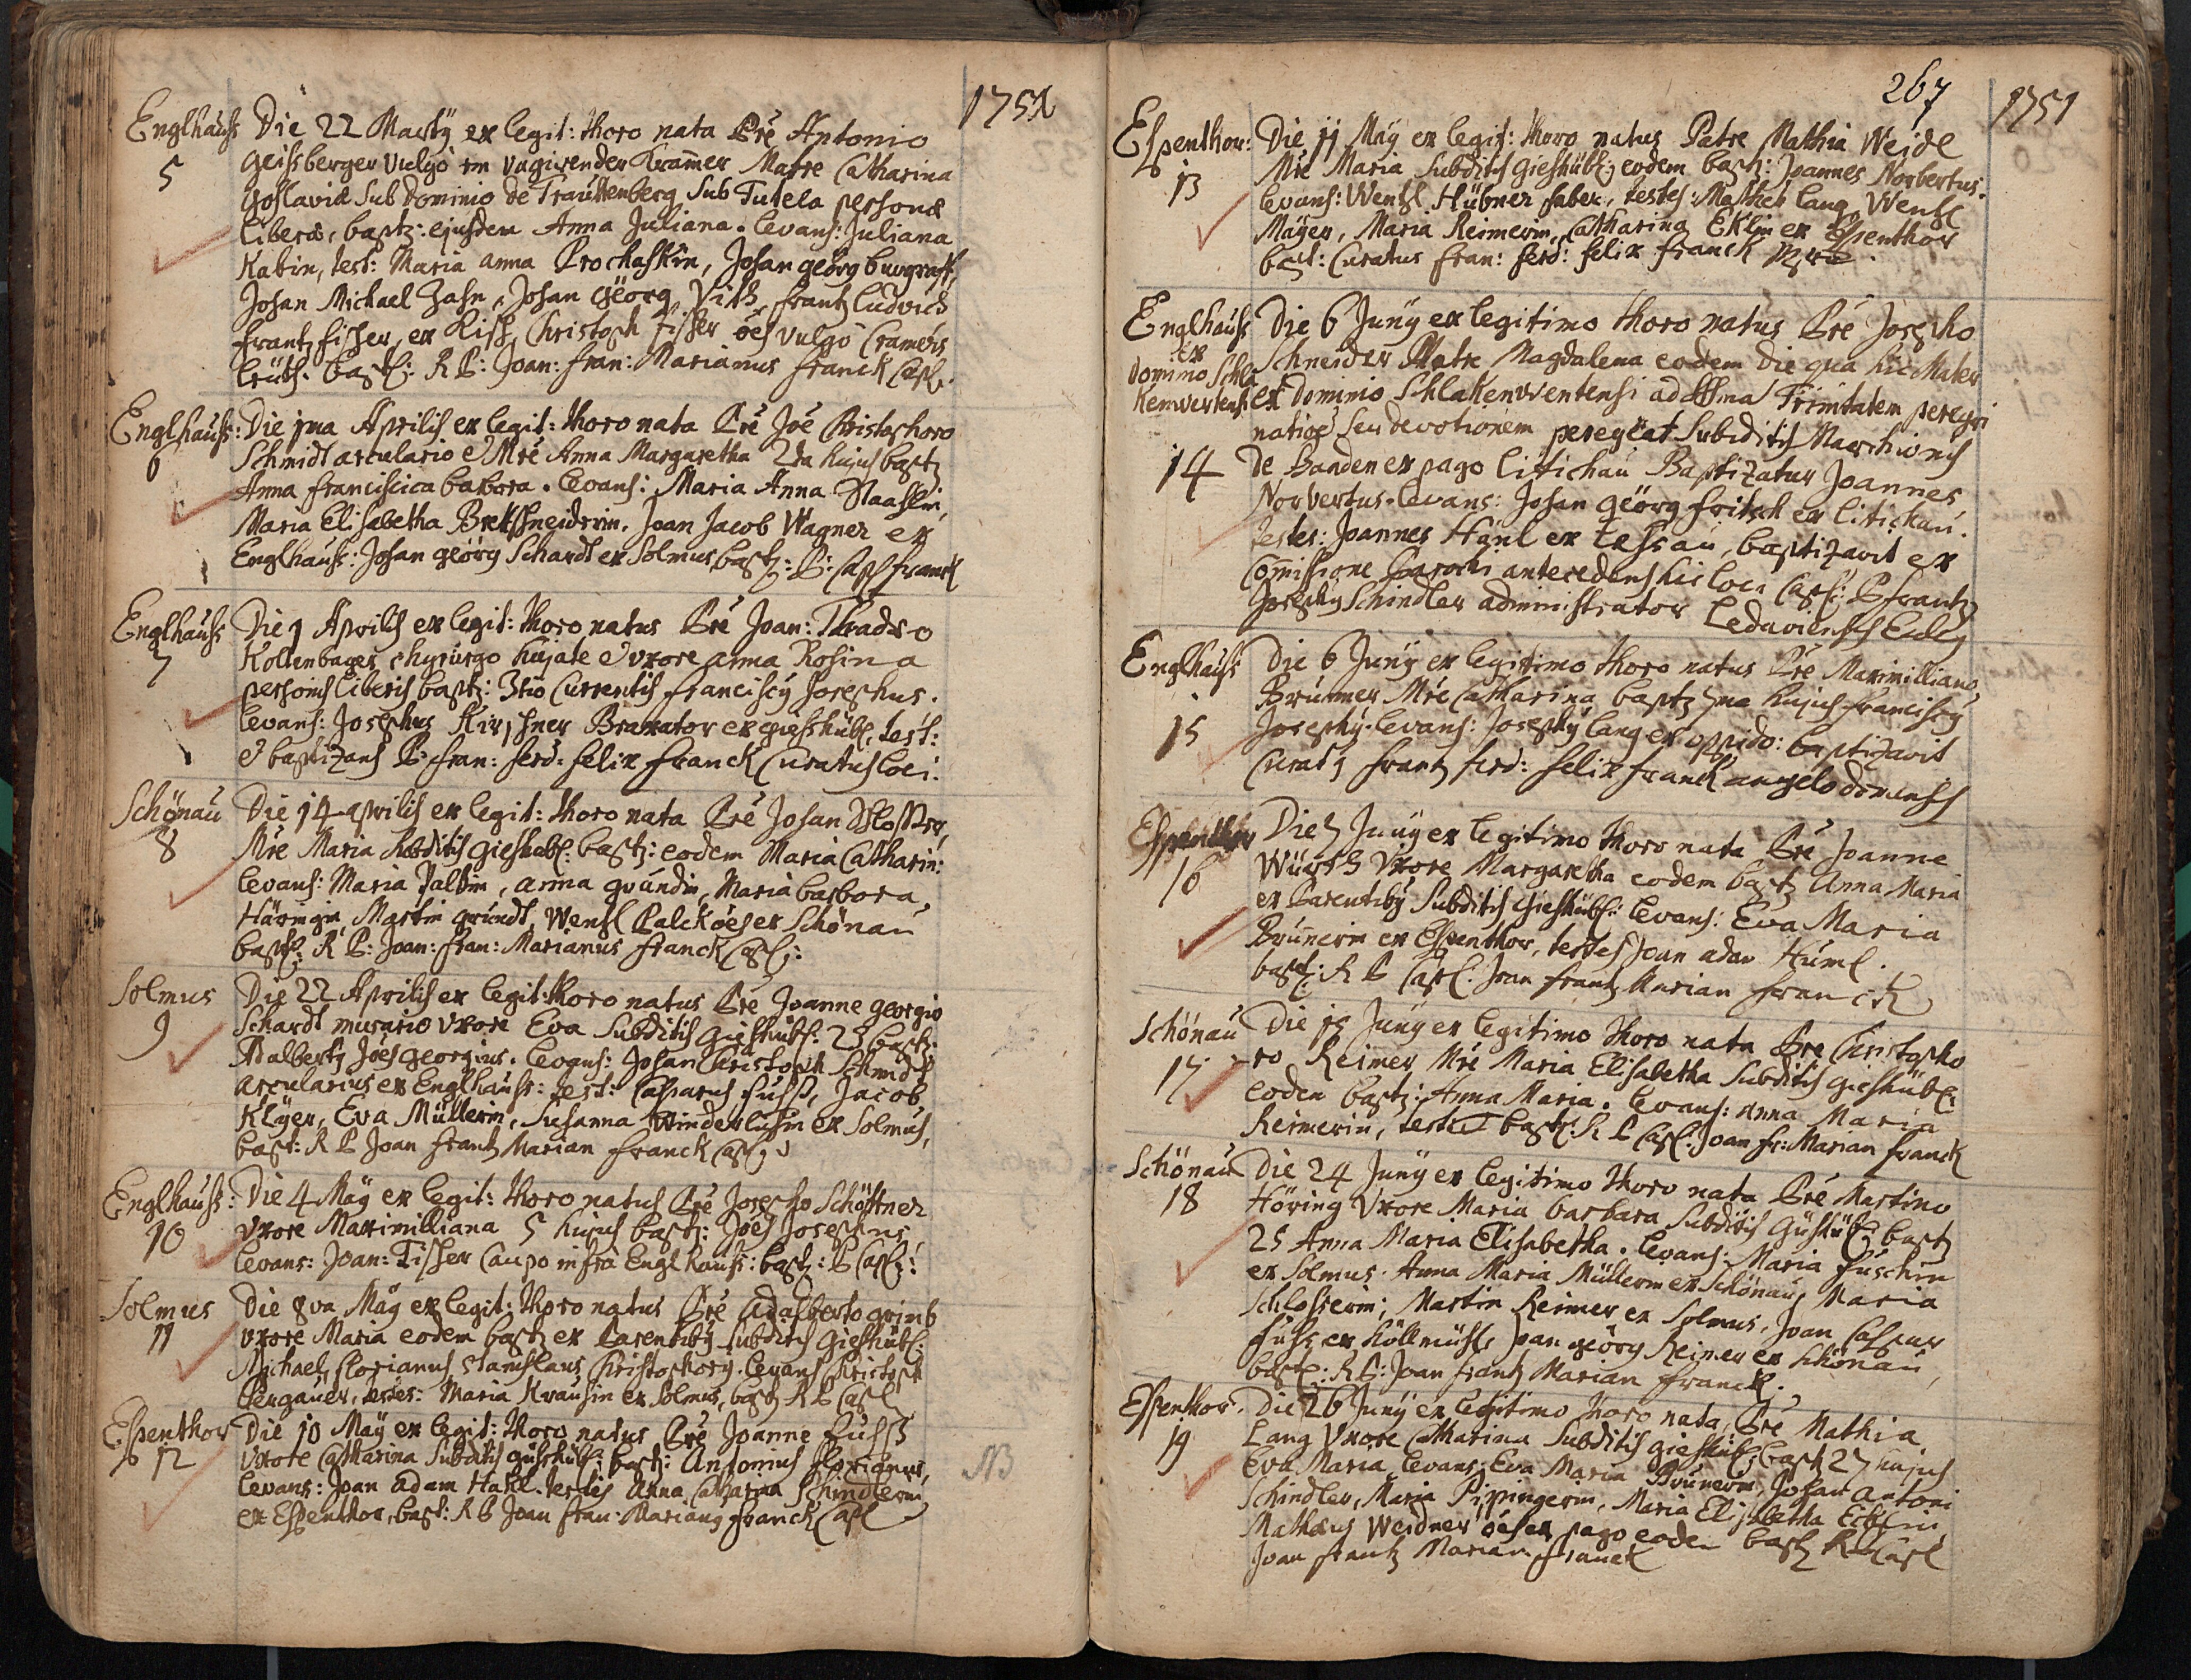 1751
Englhauß Die 22 Martÿ ex legit: thoro nata Pre Antonio
5 geißberger vulgo ein vagirender Kramer Matre Catharina
goslavia Sub Dominio de Trauttenberg Sub Tutela personæ
liberæ, baptz: ejusdem Anna Juliana. levans: Juliana
Kabin, test: Maria anna Prochaskin, Johan georg burgraff,
Johan Michael Zahn, Johan Georg Vith, frantz Ludvich
frantz fischer, ex Risch, Christoph fischer oes vulgo Cramers
leüth. baptz: R P: Joan: fran: Marianus franck Capl:
Englhauß: Die 1ma Aprilis ex legit: thoro nata Pre Joe Christophoro
6 Schmidt arculario & Mre Anna Margaretha 2da hujus baptz
Anna francisca barbora. levans: Maria Anna
Maria Elisabetha Joan Jacob Wagner ex
Englhauß: Johan georg Schardt ex Solmus, baptz: P: Capl franck
Englhauß Die 1 Aprilis ex legit: thoro natus Pre Joan: Thadæo
7 Koltenbager chyrurgo hujate & uxore anna Rosina
personis liberis baptz: 3tio Currentis franciscq Josephus.
levans: Josephus Kirschner Braxator ex gießhübl, test:
& baptizans P: fran: ferd: felix franck Curatus loci.
Schönau Die 14 aprilis ex legit: thoro nata Pre Johan Schlosser,
8 Mre Maria subditis gieshübl: baptz: eodem Maria Catharin:
levans: Maria Palkin, anna gründin, Maria barbora,
Häringin, Martin gründt, Wentzl Palck oes ex Schönau
baptz: R P: Joan: fran: Marianus franck Capl:
Solmus Die 22 Aprilis ex legit: thoro natus Pre Joanne georgio
9 Schardt murario uxore Eva Subditis gieshübl: 23 baptz:
Adalbertq Joes georgius. levans: Johan Christoph Schmidt
arcularius ex Englhauß: test: Casparus fuhß, Jacob
Klÿer, Eva Müllerin, Susanna ex Solmus,
bapt: R P Joan frantz Marian franck Capl
Englhauß: Die 4 Maÿ ex legit: thoro natus Pre Josepho Schöttner
10 uxore Maximilliana 5 hujus baptz: Joes Josephus,
levans: Joan: Fischer Caupo infra Englhauß: baptz: P Capl:
Solmus Die 8va Maÿ ex legit: thoro natus Pre Adalberto grimb
11 uxore Maria eodem baptz ex Parentibq subditis Gieshübl:
Michael, florianus Stanislaus Christophorq. levans Christoph
Pergauer, testes: Maria Krausin ex Solmus, baptz R P Capl
Espenthor Die 10 Maÿ ex legit: thoro natus Pre Joanne Fuhß
12 uxore Catharina Subditis gieshübl: baptz: Antonius florianus,
levans: Joan Adam Hahl. testes Anna Catharina Schindlerin
ex Espenthor, bapt: R P Joan fran: Marianq franck Capl
NB
267
1751
Espenthor: Die 11 Maÿ ex legit: thoro natus Patre Mathia Weidl
13 Mre Maria Subditis gieshübl: eodem baptz: Joannes Norbertus:
levans: Wentzl Hübner faber, testes: Mathes lang, Wentzl
Mayer, Maria Reimerin, Catharina Eklin ex Espenthor
bapt: Curatus fran: ferd: felix franck mpria.
Englhauß: Die 6 Junÿ ex legitimo thoro natus Pre Josepho
ex Schneider Matre Magdalena eodem die qua hic Mater
domino Schla ex Dominio Schlakenwertensi ad SSma Trinitatem peregri
kenwertensi natione seu devotionem peregeat Subditis Marchionis
14 de Baaden ex pago litichau Baptizatur Joannes
Norbertus. levans: Johan georg fritsch ex litichau.
testes: Joannes Hänl ex tessau, baptizavit ex
Comissione Parochi antecedens hic loci Capl: P frantz
Josephq Schindler administrator
Englhauß Die 6 Junÿ ex legitimo thoro natus Pre Maximilliano,
15 Brunner Mre Catharina baptz 7ma hujus franciscq
Josephq. levans: Josephq lang ex oppido: baptizavit
Curatq frantz ferd: felix franck angelodomensis
Espenthor Die 7 Junÿ ex legitimo thoro nata Pre Joanne
16 Würth Uxore Margaretha eodem baptz Anna Maria
ex Parentibq Subditis gieshübl: levans: Eva Maria
Brünerin ex Espenthor, testes Joan adam Huml.
baptz: R P Capl: Joan frantz Marian franck
Schönau Die 15 Junÿ ex legitimo thoro nata Pre Christopho
17 ro Reimer Mre Maria Elisabetha Subditis gieshübl:
eodem baptz: Anna Maria. levans: Anna Maria
Reimerin, baptz: R P Capl: Joan fr: Marian franck
Schönau Die 24 Junÿ ex legitimo thoro nata Pre Martino
18 Höring Uxore Maria barbara Subditis Gieshübl: baptz
25 Anna Maria Elisabetha. levans: Maria fuschin
ex Solmus. Anna Maria Müllerin ex Schönau, Maria
Schlosserin; Martin Reimer ex Solmus, Joan Caspar
fuhs ex Höllmühl, Joan georg Reimer ex Schönau,
baptz: R P: Joan frantz Marian franck.
Espenthor. Die 26 Junÿ ex legitimo thoro nata, Pre Mathia
19 Lang Uxore Catharina Subditis gieshübl: baptz 27 hujus
Eva Maria, levans: Eva Maria Brünerin, Johan Antoni
Schindler, Maria Pippingerin, Maria Elisabetha
Mathæus Weidner oes ex pago eodem baptz R P Capl
Joan frantz Marian franck